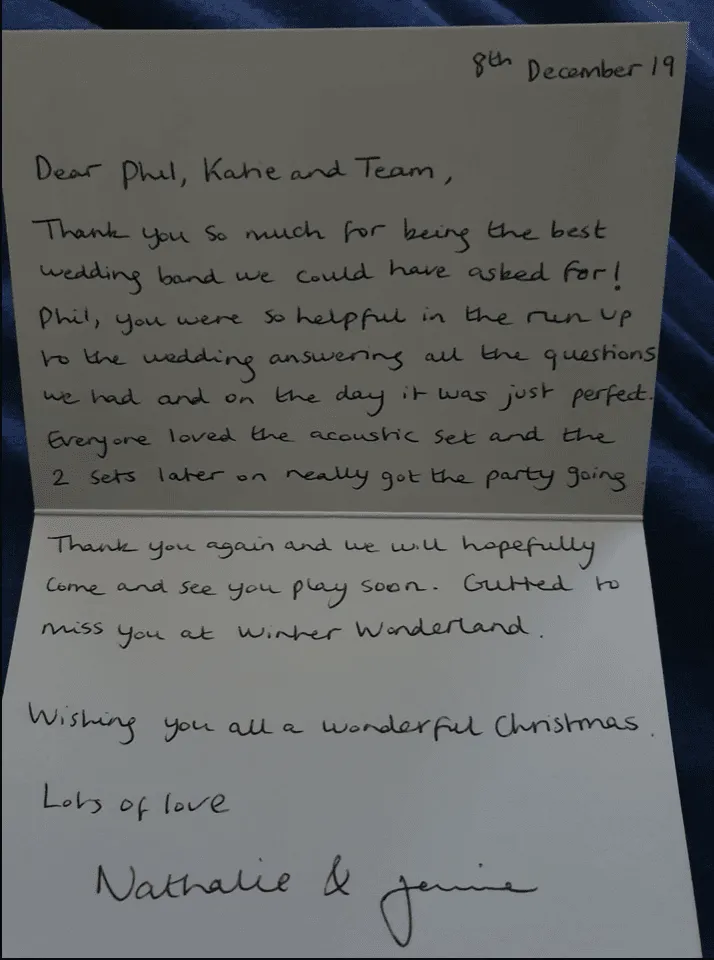 8th December 19
Dear Phil, Katie and Team,
Thank you so much for being the best
wedding band we could have asked for!
Phil, you were so helpful in the run up
to the wedding answering all the questions
we had and on the day it was just perfect.
Everyone loved the acoustic set and the
2 sets later on really got the party going
Thank you again and we will hopefully
come and see you play soon. Gutted to
miss you at Winter Wonderland.
Wishing you all a wonderful Christmas.
Lots of love
Nathalie &